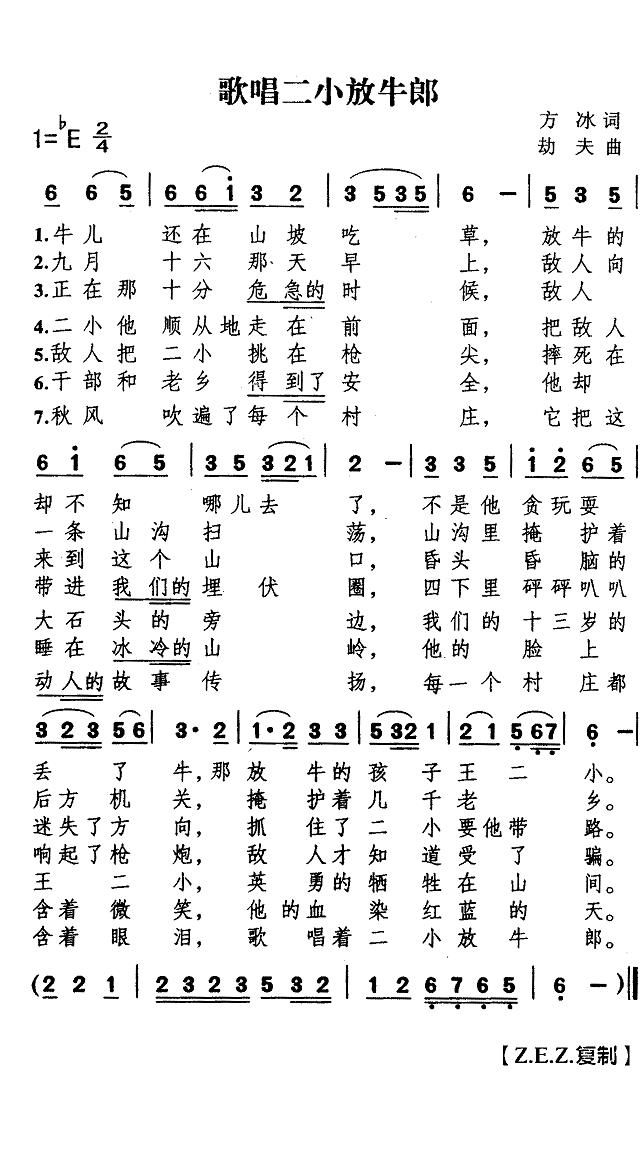 歌唱二小放牛郎
1=♭E 2/4
方 冰 词
劫 夫 曲
6 6 5 | 6 6 i 3 2 | 3 5 3 5 | 6 － | 5 3 5 |
1.牛儿 还在 山坡吃 草， 放牛的
2.九月 十六 那天早 上， 敌人向
3.正在那 十分 危急的时 候， 敌人
4.二小他 顺从地走在前 面， 把敌人
5.敌人把 二小 挑在枪 尖， 摔死在
6.干部和 老乡 得到了安 全， 他却
7.秋风 吹遍了每个村 庄， 它把这
6 i 6 5 | 3 5 3 2 1 | 2 － | 3 3 5 | i 2 6 5 |
却不知 哪儿去 了， 不是他 贪玩耍
一条山沟扫 荡， 山沟里掩护着
来到这个山 口， 昏头昏脑的
带进我们的埋伏 圈， 四下里砰砰叭叭
大石头的旁 边， 我们的十三岁的
睡在冰冷的山 岭， 他的脸上
动人的故事传 扬， 每一个村庄都
3 2 3 5 6 | 3· 2 | 1· 2 3 3 | 5 3 2 1 | 2 1 5 6 7 | 6 － |
丢了牛，那放牛的孩子王二 小。
后方机关，掩护着几千老 乡。
迷失了方向，抓住了二小要他带 路。
响起了枪炮，敌人才知道受了 骗。
王二小，英勇的牺牲在山 间。
含着微笑，他的血染红蓝的 天。
含着眼泪，歌唱着二小放牛 郎。
(2 2 1 | 2 3 2 3 5 3 2 | 1 2 2 6 7 6 5 | 6 － )‖
【Z.E.Z.复制】